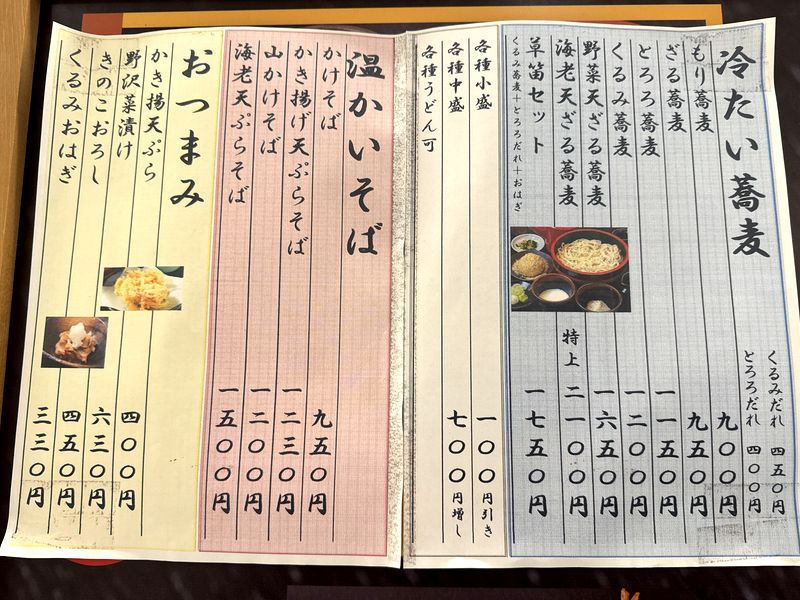 冷たい蕎麦
くるみだれ 四五〇円
とろろだれ 四〇〇円
もり蕎麦 九〇〇円
ざる蕎麦 九五〇円
とろろ蕎麦 一一五〇円
くるみ蕎麦 一二〇〇円
野菜天ざる蕎麦 一六五〇円
海老天ざる蕎麦 特上 二一〇〇円
草笛セット 一七五〇円
くるみ蕎麦＋とろろだれ＋おはぎ
各種小盛 一〇〇円引き
各種中盛 七〇〇円増し
各種うどん可
温かいそば
かけそば 九五〇円
かき揚げ天ぷらそば 一二三〇円
山かけそば 一二〇〇円
海老天ぷらそば 一五〇〇円
おつまみ
かき揚天ぷら 四〇〇円
野沢菜漬け 六三〇円
きのこおろし 四五〇円
くるみおはぎ 三三〇円